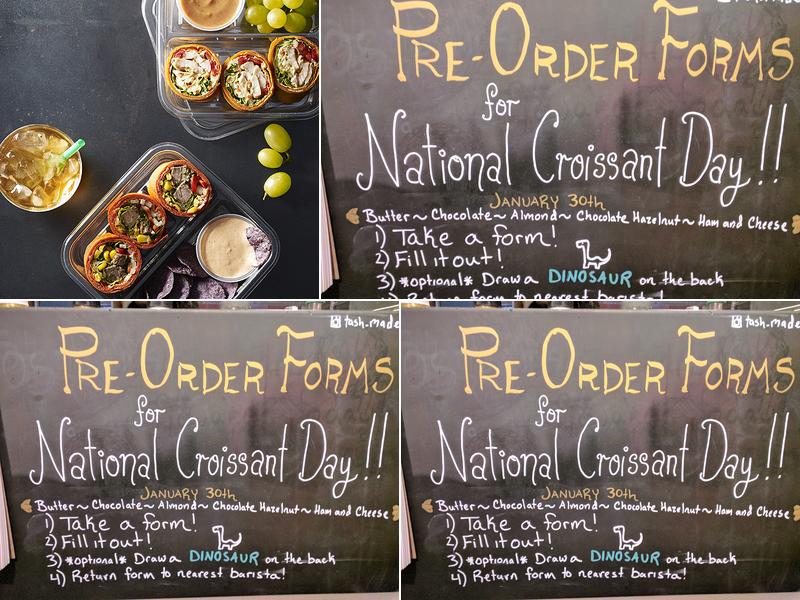 PRE-ORDER FORMS
for
National Croissant Day!!
JANUARY 30th
Butter~ Chocolate~ Almond~ Chocolate Hazelnut~ Ham and Cheese
1) Take a form!
2) Fill it out!
3) *optional* Draw a DINOSAUR on the back
4) Return form to nearest barista!
tash.made
PRE-ORDER FORMS
for
National Croissant Day!!
JANUARY 30th
Butter~ Chocolate~ Almond~ Chocolate Hazelnut~ Ham and Cheese
1) Take a form!
2) Fill it out!
3) *optional* Draw a DINOSAUR on the back
4) Return form to nearest barista!
tash.made
PRE-ORDER FORMS
for
National Croissant Day!!
JANUARY 30th
Butter~ Chocolate~ Almond~ Chocolate Hazelnut~ Ham and Cheese
1) Take a form!
2) Fill it out!
3) *optional* Draw a DINOSAUR on the back
4) Return form to nearest barista!